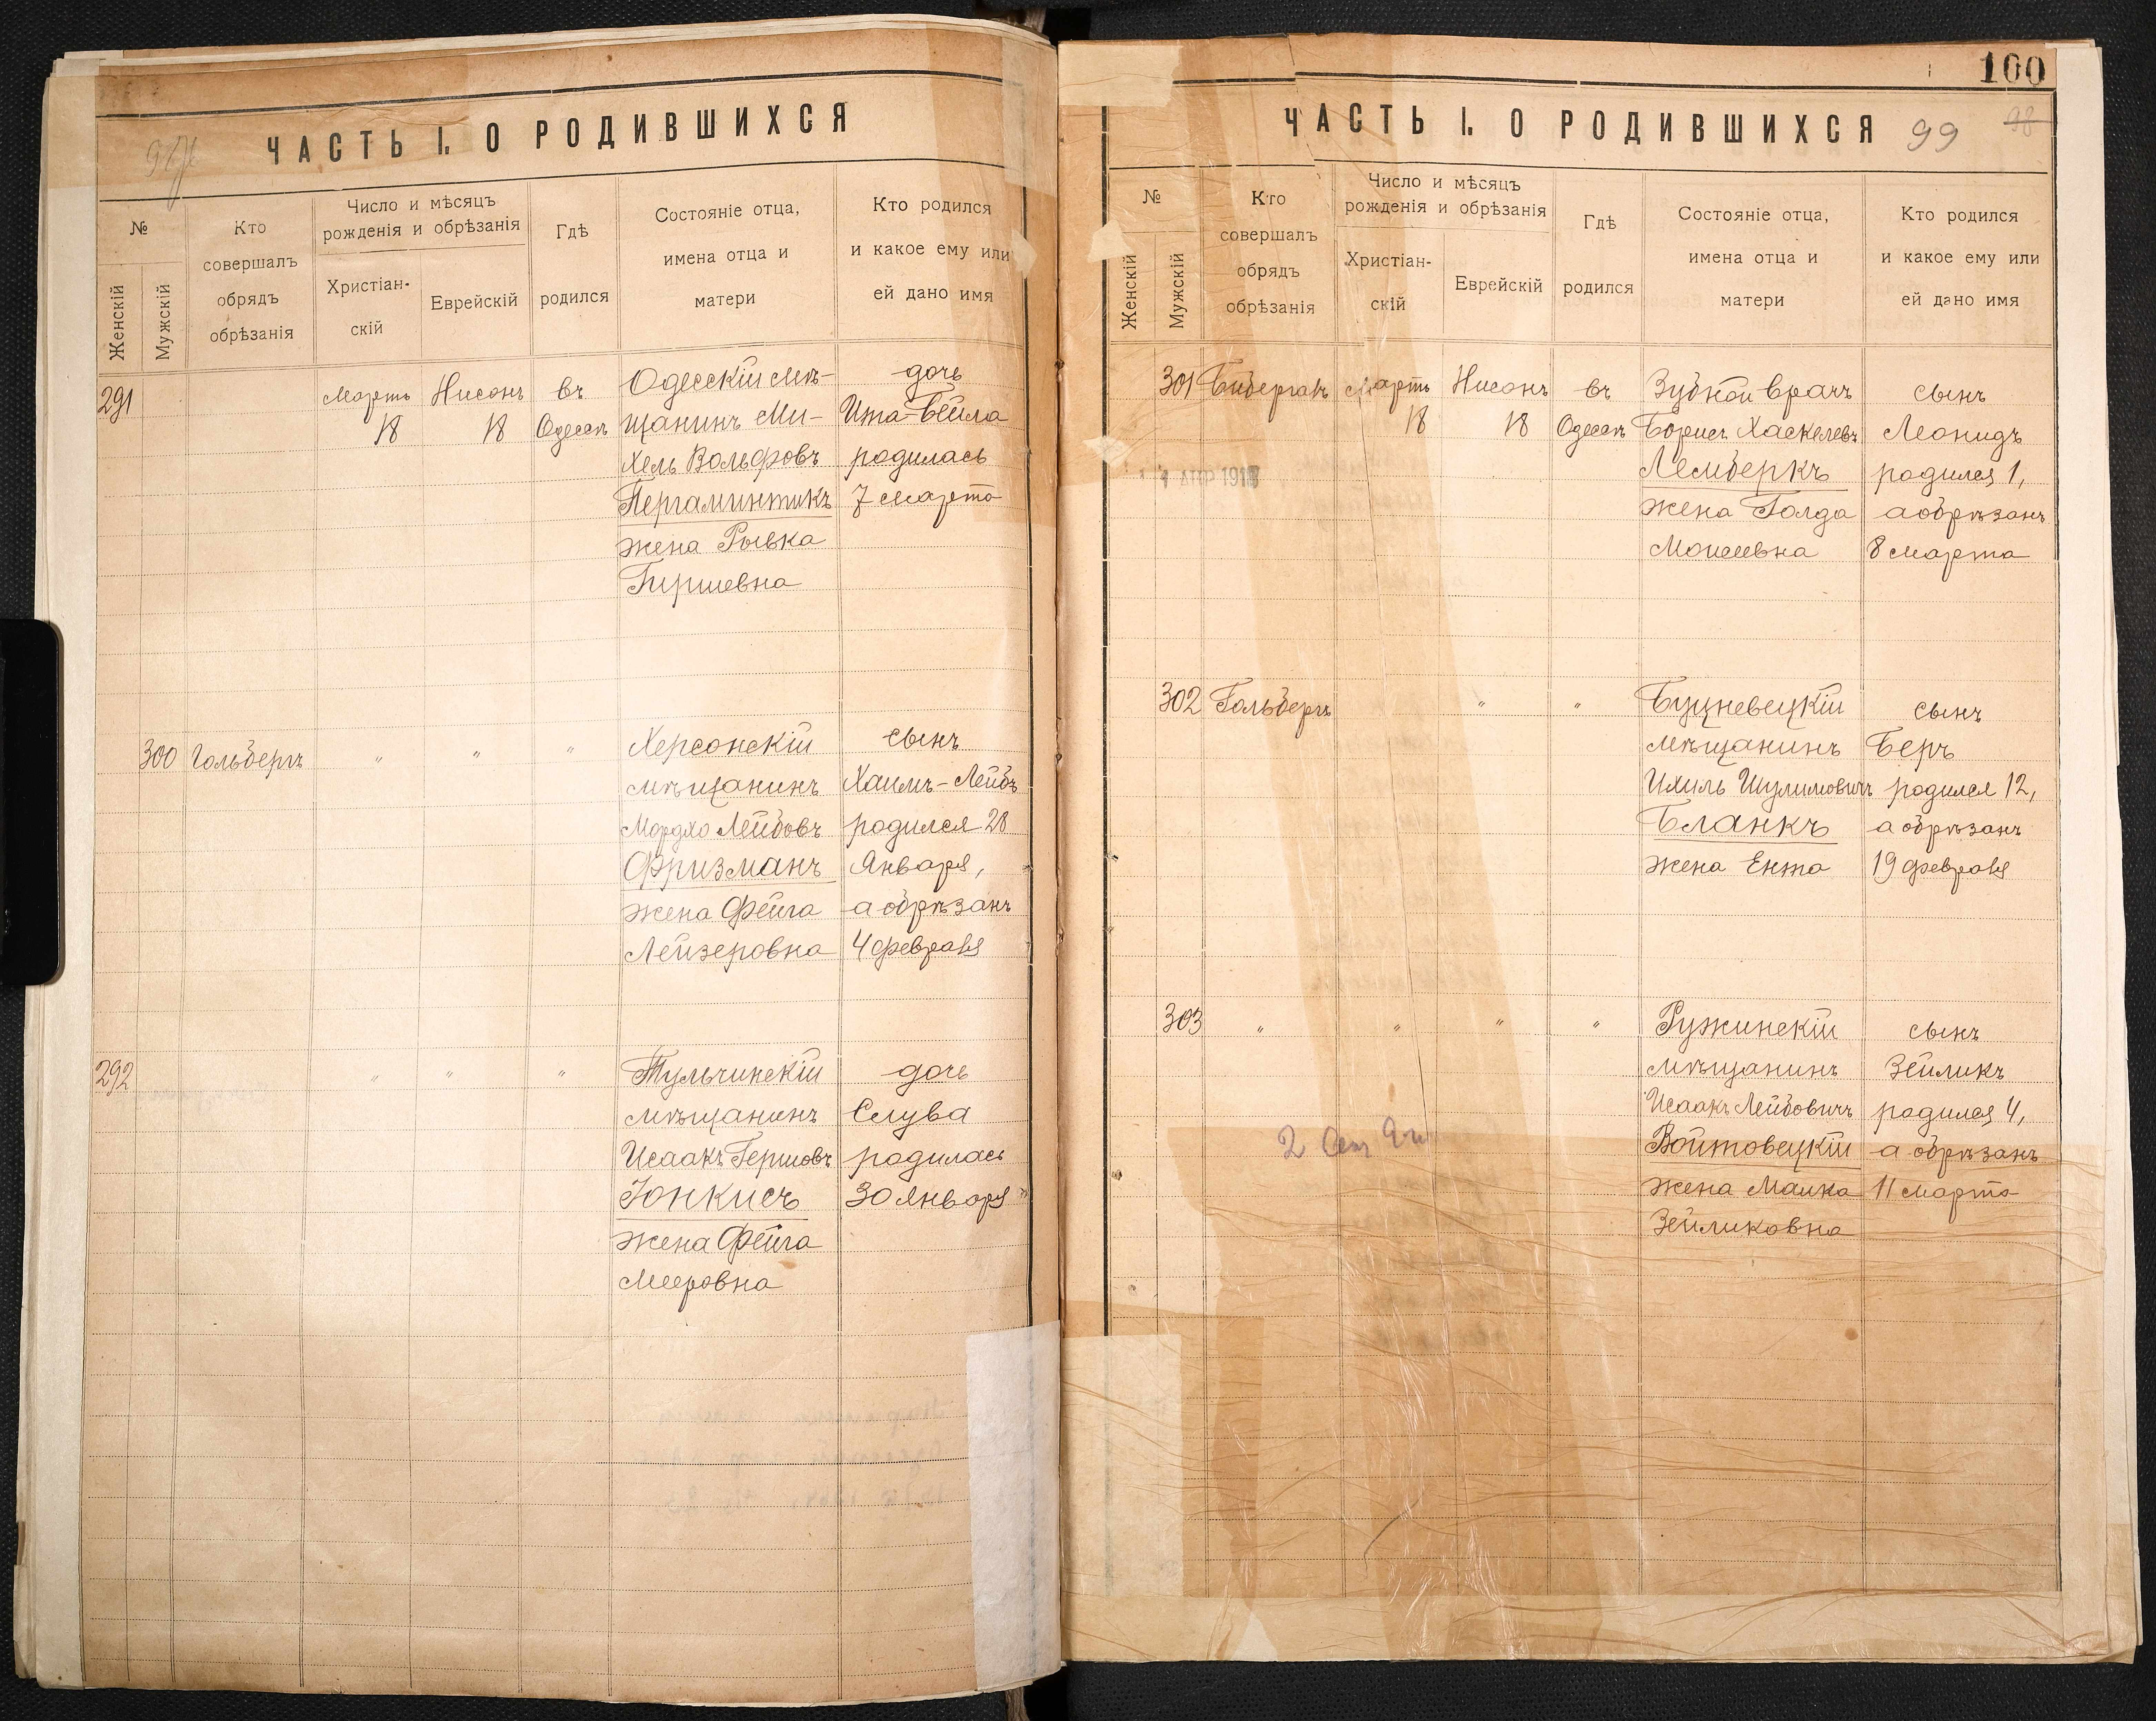 ЧАСТЬ I. О РОДИВШИХСЯ
№
Женскій
Мужскій
Кто
совершалъ
обрядъ
обрѣзанія
Число и мѣсяцъ
рожденія и обрѣзанія
Христіан-
скій
Еврейскій
Гдѣ
родился
Состояніе отца,
имена отца и
матери
Кто родился
и какое ему или
ей дано имя
291
Мартъ
18
Нисонъ
18
въ
Одессѣ
Одесскій мѣ-
щанинъ Ми-
хель Вольфовъ
Пергаминтикъ
жена Рывка
Гиршевна
дочь
Ита-Бейла
родилась
7 марта
300
Гольбергъ
"
"
"
Херсонскій
мѣщанинъ
Мордко Лейбовъ
Фризманъ
жена Фейга
Лейзеровна
сынъ
Хаимъ-Лейбъ
родился 28
Января,
а обрѣзанъ
4 февраля
292
"
"
"
Тульчинскій
мѣщанинъ
Исаакъ Гершовъ
Юнкисъ
жена Фейга
Мееровна
дочь
Слува
родилась
30 января
100
ЧАСТЬ I. О РОДИВШИХСЯ
99
98
№
Женскій
Мужскій
Кто
совершалъ
обрядъ
обрѣзанія
Число и мѣсяцъ
рожденія и обрѣзанія
Христіан-
скій
Еврейскій
Гдѣ
родился
Состояніе отца,
имена отца и
матери
Кто родился
и какое ему или
ей дано имя
301
Бибергалъ
Мартъ
18
Нисонъ
18
въ
Одессѣ
Зубной врачъ
Борисъ Хаскелевъ
Лемберкъ
жена Голда
Моисеевна
сынъ
Леонидъ
родился 1,
а обрѣзанъ
8 марта
302
Гольбергъ
"
"
мѣщанинъ
Ихиль Шулимовичъ
Бланкъ
жена Ента
сынъ
Беръ
родился 12,
а обрѣзанъ
19 февраля
303
"
"
"
"
Ружинскій
мѣщанинъ
Исаакъ Лейбовичъ
Войтовецкій
жена Малка
Зейликовна
сынъ
Зейликъ
родился 4,
а обрѣзанъ
11 марта